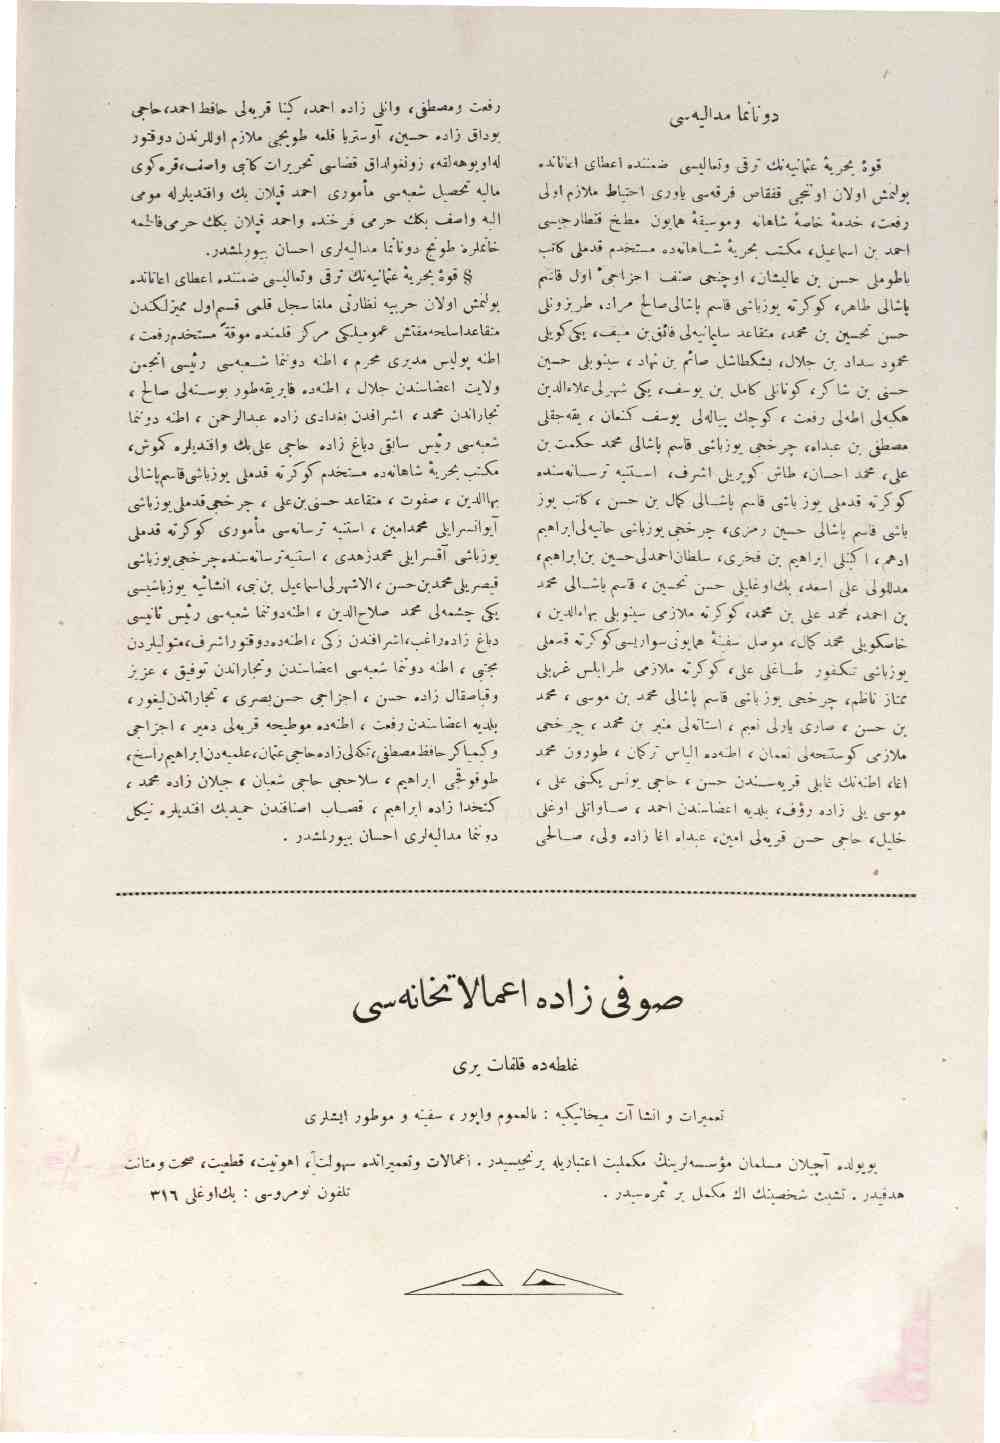 دونانما مدالیه‌سی
قوهٔ بحریهٔ عثمانیه‌نك ترقی وتعالیسی ضمننده اعطای اعاناتده
بولنمش اولان اوننجی قفقاص فرقه‌سی یاوری احتیاط ملازم اولی
رفعت، خدمهٔ خاصهٔ شاهانه وموسیقهٔ همایون مطبخ قنطارجیسی
احمد بن اسماعیل، مکتب بحریهٔ شاهانه‌ده مستخدم قدملی کاتب
باطوملی حسن بن عالیشان، اوچنجی صنف اجزاجی اول قاسم
پاشالی طاهر، کوکرته یوزباشی قاسم پاشالی صالح مراد، طربزونلی
حسن تحسین بن محمد، متقاعد سلیمانیه‌لی فائق بن منیف، یکی کویلی
محمود سداد بن جلال، بشکطاشل صائم بن نهاد، سینوبلی حسین
حسنی بن شاکر، کوتانلی کامل بن یوسف، یکی شهرلی علاءالدین
هکبه‌لی اطه‌لی رفعت، کوچك پیاله‌لی یوسف کنعان، یقه‌جقلی
مصطفی بن عبداه، چرخجی یوزباشی قاسم پاشالی محمد حکمت بن
علی، محمد احسان، طاش کوپریلی اشرف، استنیه ترسانه‌سنده
کوکرته قدملی یوز باشی قاسم پاشالی کمال بن حسن، کاتب یوز
باشی قاسم پاشالی حسین رمزی، چرخجی یوزباشی حانیه‌لی ابراهیم
ادهم، اکینلی ابراهیم بن فخری، سلطان احمدلی حسین بن ابراهیم،
مدللولی علی اسعد، بك‌اوغلیلی حسن تحسین، قاسم پاشالی محمد
بن احمد، محمد علی بن محمد، کوکرته ملازمی سینوبلی بهاءالدین،
خاصکویلی محمد کمال، موصل سفینهٔ همایونی سواریسی کوکرته قدملی
یوزباشی تکفور طاغلی علی، کوکرته ملازمی طرابلس غربلی
ممتاز ناظم، چرخجی یوزباشی قاسم پاشالی محمد بن موسی، محمد
بن حسن، صاری یارلی نعیم، استانه‌لی منیر بن محمد، چرخجی
ملازمی کوستنجه‌لی نعمان، اطنه‌ده الیاس ترکان، طورون محمد
اغا، اطنه‌نك غابلی قریه‌سندن حسن، حاجی یونس یکنی علی،
موسی بلی زاده رؤف، بلدیه اعضاسندن احمد، صاواتلی اوغلی
خلیل، حاجی حسن قریه‌لی امین، عبداه اغا زاده ولی، صالحی
رفعت ومصطفی، وانلی زاده احمد، کینا قریه‌لی حافظ احمد، حاجی
بوداق زاده حسین، آوستریا قلعه طوبجی ملازم اوللرندن دوقتور
له‌اوپوهه‌لقه، زونغولداق قضاسی تحریرات کاتبی واصف، قره‌کوی
مالیه تحصیل شعبه‌سی مأموری احمد قپلان بك وافندیلرله مومی
الیه واصف بکك حرمی فرخنده واحمد قپلان بکك حرمی فاطمه
خانملره طونج دونانما مدالیه‌لری احسان بیورلمشدر.
§ قوهٔ بحریهٔ عثمانیه‌نك ترقی وتعالیسی ضمننده اعطای اعاناتده
بولنمش اولان حربیه نظارتی ملغا سجل قلمی قسم اول ممیزلکندن
متقاعد اسلحه مفتش عمومیلکی مرکز قلمنده موقة مستخدم رفعت،
اطنه پولیس مدیری محرم، اطنه دوننما شعبه‌سی رئیسی انجمن
ولایت اعضاسندن جلال، اطنه‌ده فابریقه‌طور بوسنه‌لی صالح،
تجاراندن محمد، اشرافدن بغدادی زاده عبدالرحمن، اطنه دوننما
شعبه‌سی رئیس سابقی دباغ زاده حاجی علی بك وافندیلره کموش،
مکتب بحریهٔ شاهانه‌ده مستخدم کوکرته قدملی یوزباشی قاسم پاشالی
بهاالدین، صفوت، متقاعد حسنی بن علی، چرخجی قدملی یوزباشی
آیوانسرایلی محمد امین، استنیه ترسانه‌سی مأموری کوکرته قدملی
یوزباشی آقسرایلی محمد زهدی، استنیه ترسانه‌سنده چرخجی یوزباشی
قیصریلی محمد بن حسن، الاشهرلی اسماعیل بن نبی، انشائیه یوزباشیسی
یکی چشمه‌لی محمد صلاح‌الدین، اطنه دوننما شعبه‌سی رئیس ثانیسی
دباغ زاده راغب، اشرافندن زکی، اطنه‌ده دوقتور اشرف، متولیلردن
مجتبی، اطنه دوننما شعبه‌سی اعضاسندن وتجاراندن توفیق، عزیز
وقباصقال زاده حسن، اجزاجی حسن بصری، تجاراتدن لیغور،
بلدیه اعضاسندن رفعت، اطنه‌ده موطیحه قریه‌لی دمیر، اجزاجی
وکیمیاکر حافظ مصطفی، تکه‌لی زاده حاجی عثمان، علمیه‌دن ابراهیم راسخ،
طوقوقجی ابراهیم، سلاحجی حاجی شعبان، جیلان زاده محمد،
کتخدا زاده ابراهیم، قصاب اصنافندن حمیدبك افندیلره نیکل
دوننما مدالیه‌لری احسان بیورلمشدر.
صوفی زاده اعمالاتخانه‌سی
غلطه‌ده قلفات یری
تعمیرات و انشاآت میخانیکیه : بالعموم واپور، سفینه و موطور ایشلری
بویولده آچیلان مسلمان مؤسسه‌لرینك مکملیت اعتباریله برنجیسیدر. اعمالات وتعمیراتده سهولت، اهونیت، قطعیت، صحت ومتانت
هدفیدر. تشبث شخصینك اك مکمل بر ثمره‌سیدر. تلفون نومروسی : بك‌اوغلی ٣١٦